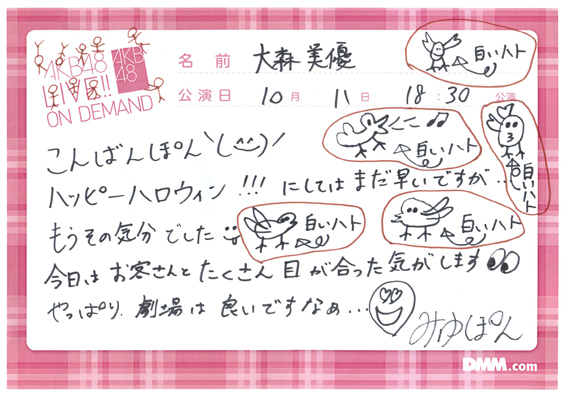 AKB48
LIVE!!
ON DEMAND
AKB
48
名前 大森美優
公演日 10月 11日 18:30 公演
白いハト
こんばんぽん\(^^)/
白いハト
白いハト
ハッピーハロウィン!!! にしては まだ早いですが…
もうその気分でした
白いハト
白いハト
今日は お客さんと たくさん 目が合った 気がします
やっぱり、劇場は 良いですなぁ…
みゆぽん
DMM.com